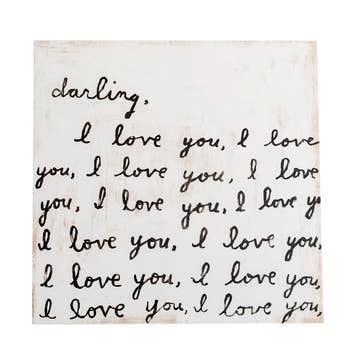 darling,
I love you, I love
you, I love you, I love
you, I love you, I love y
I love you, I love you,
I love you, I love you,
I love you, I love you,